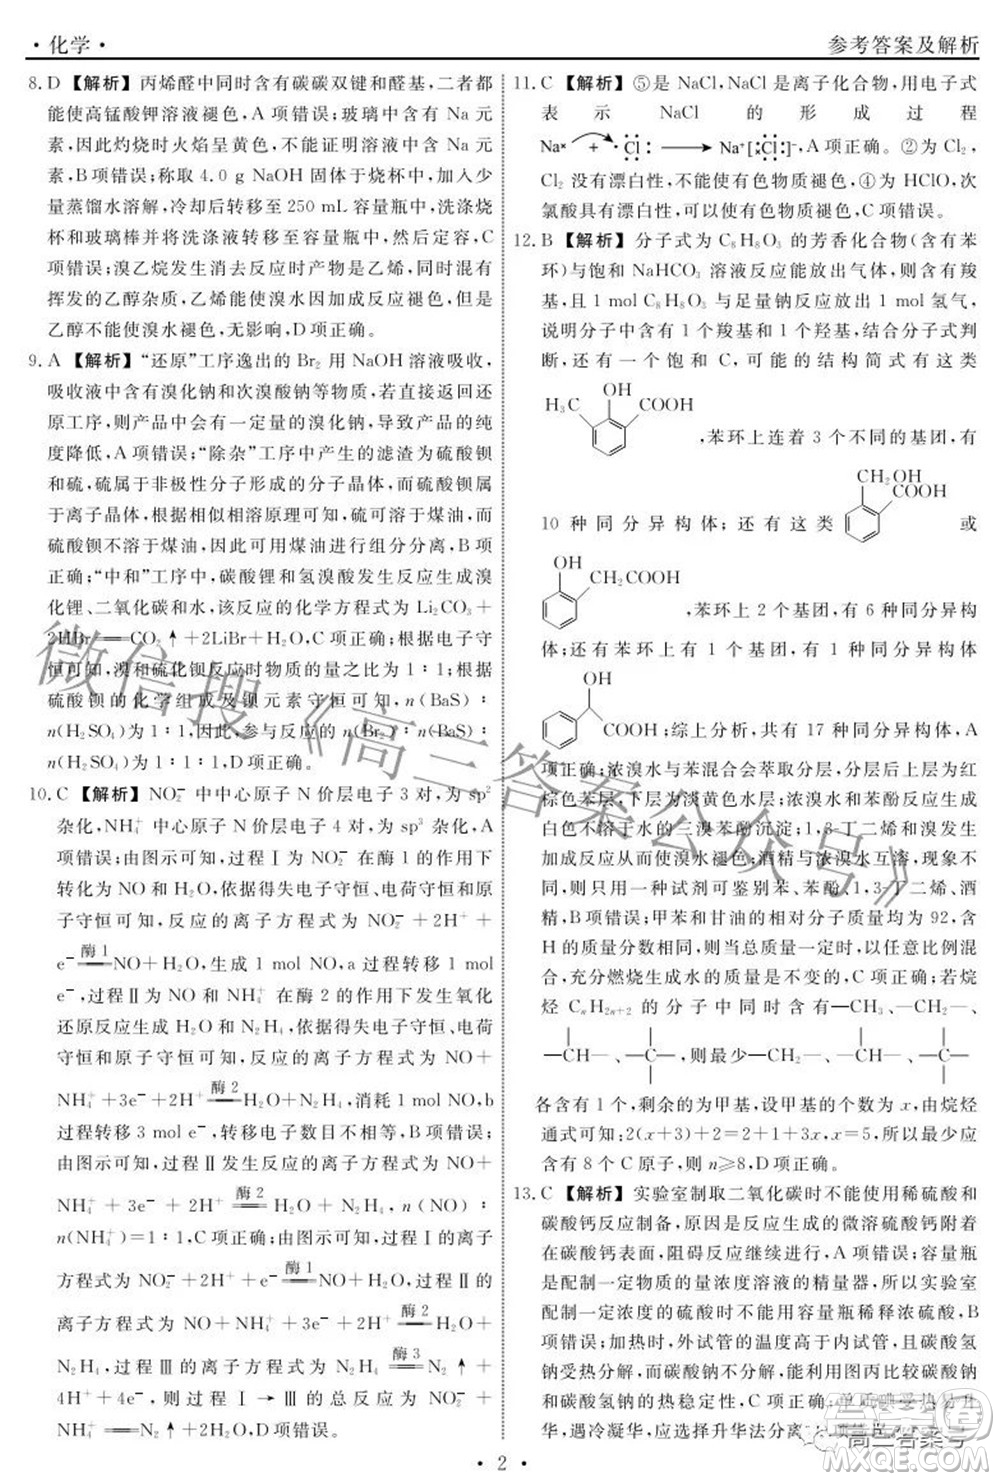 · 化学 ·
参考答案及解析
8. D 【解析】丙烯醛中同时含有碳碳双键和醛基,二者都
能使高锰酸钾溶液褪色,A 项错误;玻璃中含有 Na 元
素,因此灼烧时火焰呈黄色,不能证明溶液中含有 Na 元
素,B 项错误;称取 4.0 g NaOH 固体于烧杯中,加入少
量蒸馏水溶解,冷却后转移至 250 mL 容量瓶中,洗涤烧
杯和玻璃棒并将洗涤液转移至容量瓶中,定容摇匀,C
项错误;溴乙烷发生消去反应生成了乙烯,还可能混有
挥发的乙醇杂质,乙烯与溴水因发生加成反应而褪色,
乙醇不能使溴水褪色,D 项正确。
9. A 【解析】“还原”工序逸出的 Br₂ 用 NaOH 溶液吸收,
吸收液中含有溴化钠和次溴酸钠等物质,若直接返回还
原工序,则产品中含有一定量的溴化钠,导致产品的纯
度降低,A 项错误;“除杂”工序中产生的滤渣为硫酸钡
和硫,硫属于非极性分子形成的分子晶体,而硫酸钡属
于离子晶体,根据相似相溶原理可知,硫可溶于煤油,而
硫酸钡不溶于煤油,因此可用煤油进行组分分离,B 项
正确;“中和”工序中,碳酸锂和氢溴酸发生反应生成溴
化锂、二氧化碳和水,该反应的化学方程式为 Li₂CO₃ +
2HBr══CO₂↑+2LiBr+H₂O,C 项正确;根据电子守
恒可知,溴和硫化钡反应时物质的量之比为 1∶1;根据
硫酸钡的化学组成及钡元素守恒可知,n(BaS)∶
n(H₂SO₄)为 1∶1,因此,参与反应的 n(Br₂)∶n(BaS)∶
n(H₂SO₄)为 1∶1∶1,D 项正确。
10. C 【解析】NO₂⁻ 中中心原子 N 价层电子 3 对,为 sp²
杂化,NH₄⁺ 中心原子 N 价层电子 4 对,为 sp³ 杂化,A
项错误;由图示可知,过程Ⅰ为 NO₂⁻ 在酶 1 的作用下
转化为 NO 和 H₂O,依据得失电子守恒、电荷守恒和原
子守恒可知,反应的离子方程式为 NO₂⁻ + 2H⁺ +
e⁻ ══(酶 1) NO+H₂O,生成 1 mol NO,a 过程转移 1 mol
e⁻,过程Ⅱ为 NO 和 NH₄⁺ 在酶 2 的作用下发生氧化
还原反应生成 H₂O 和 N₂H₄,依据得失电子守恒、电荷
守恒和原子守恒可知,反应的离子方程式为 NO+
NH₄⁺+3e⁻+2H⁺ ══(酶 2) H₂O+N₂H₄,消耗 1 mol NO,b
过程转移 3 mol e⁻,转移电子数目不相等,B 项错误;
由图示可知,过程Ⅱ发生反应的离子方程式为 NO+
NH₄⁺ + 3e⁻ + 2H⁺ ══(酶 2) H₂O + N₂H₄,n(NO)∶
n(NH₄⁺)=1∶1,C 项正确;由图示可知,过程Ⅰ的离子
方程式为 NO₂⁻+2H⁺+e⁻ ══(酶 1) NO+H₂O,过程Ⅱ的
离子方程式为 NO + NH₄⁺ + 3e⁻ + 2H⁺ ══(酶 2) H₂O +
N₂H₄,过程Ⅲ的离子方程式为 N₂H₄ ══(酶 3) N₂↑ +
4H⁺ + 4e⁻,则过程Ⅰ→Ⅲ的总反应为 NO₂⁻ +
NH₄⁺ ══ N₂↑+2H₂O,D 项错误。
11. C 【解析】⑤是 NaCl,NaCl 是离子化合物,用电子式
表示 NaCl 的形成过程
Na× + ·Cl: → Na⁺[×Cl:]⁻,A 项正确。②为 Cl₂,
Cl₂ 没有漂白性,不能使有色物质褪色,④为 HClO,次
氯酸具有漂白性,可以使有色物质褪色,C 项错误。
12. B 【解析】分子式为 C₈H₈O₃ 的芳香化合物(含有苯
环)与饱和 NaHCO₃ 溶液反应能放出气体,含有羧
基,且 1 mol C₈H₈O₃ 与足量钠反应放出 1 mol 氢气,
说明分子中含有 1 个羧基和 1 个羟基,结合分子式判
断,还有一个饱和 C,可能的结构简式有这类
OH
H₃C COOH
,苯环上连着 3 个不同的基团,有
CH₂OH
COOH
10 种同分异构体;还有这类 或
OH
CH₂COOH
,苯环上 2 个基团,有 6 种同分异构
体;还可以是
OH
COOH;综上分析,共有 17 种同分异构体,A
项正确;浓溴水与苯混合会萃取分层,分层后上层为红
棕色苯层,下层为淡黄色水层;浓溴水和苯酚反应生成
白色不溶于水的三溴苯酚沉淀;1,3-丁二烯和溴发生
加成反应,使溴水褪色;酒精与浓溴水互溶,现象不
同,所以只用一种试剂可鉴别苯、苯酚、1,3-丁二烯、酒
精,B 项错误;甲苯和甘油的相对分子质量均为 92,含
H 的质量分数相同,所以当总质量一定时,以任意比混
合,充分燃烧生成水的质量是不变的,C 项正确;若烷
烃 CₙH₂ₙ₊₂ 的分子中同时含有—CH₃、—CH₂—、
—CH—、—C—,则最少—CH₂—、—CH—、—C—
各含有 1 个,剩余的为甲基,设甲基的个数为 x,由烷烃
通式可知:2(x+3)+2=2+1+3x,x=5,则最少应
含有 8 个 C 原子,则 n≥8,D 项正确。
13. C 【解析】实验室制取二氧化碳时不能使用稀硫酸和
碳酸钙反应制备,原因是反应生成的微溶硫酸钙附着
在碳酸钙表面,阻碍反应继续进行,A 项错误;容量瓶
是配制一定物质的量浓度溶液的精量器,所以实验室
配制一定浓度的硫酸时不能用容量瓶稀释浓硫酸,B
项错误;加热时,外试管的温度高于内试管,碳酸氢
钠受热分解,而碳酸钠不分解,能作用图丙比较碳酸钠
和碳酸氢钠的热稳定性,C 项正确;单质碘受热易升
华,遇冷凝华,应选择升华法分离
· 2 ·
微信搜《高三答案公众号》
高三答案号
答案圈